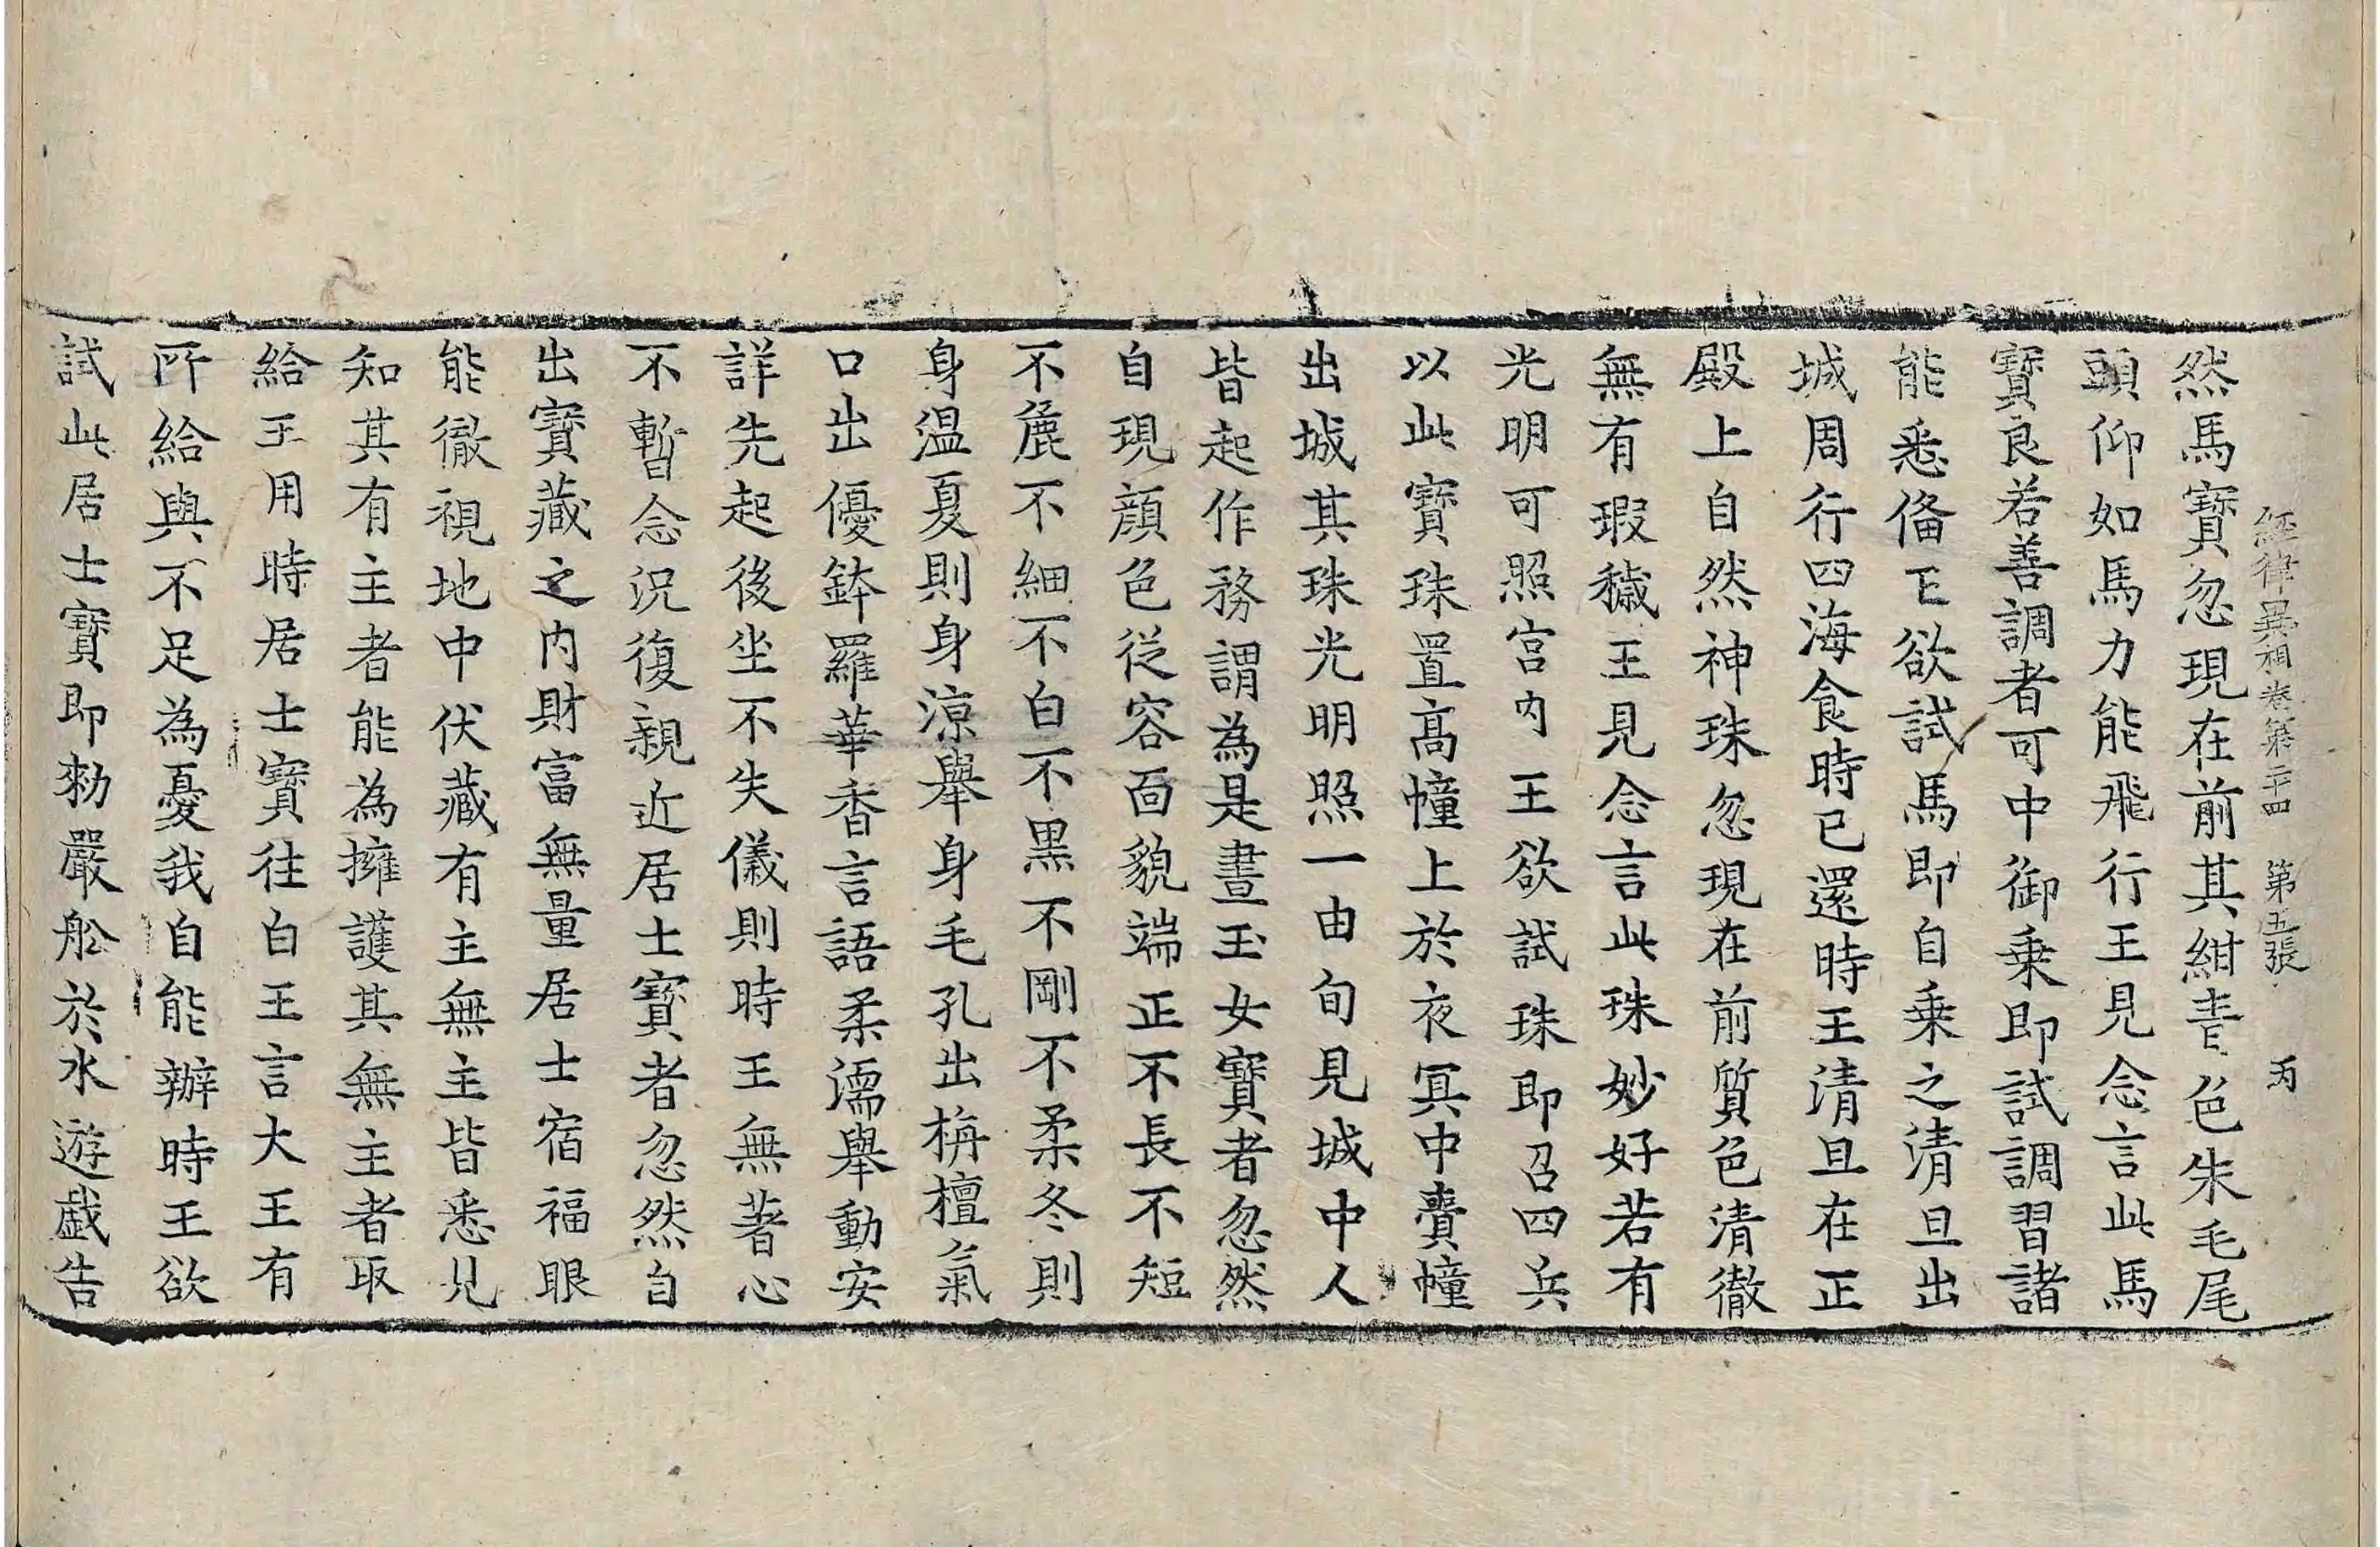 經律異相卷第二十四　第五張　丙
然馬寶忽現在前其紺青色朱毛尾
頭仰如馬力能飛行王見念言此馬
寶良若善調者可中御乗即試調習諸
能悉俻王欲試馬即自乗之清旦出
城周行四海食時已還時王清旦在正
殿上自然神珠忽現在前質色清徹
無有瑕穢王見念言此珠妙好若有
光明可照宫内王欲試珠即召四兵
以此寶珠置髙幢上於夜冥中賷幢
出城其珠光明照一由旬見城中人
皆起作務謂為是晝玉女寶者忽然
自現顔色從容面貌端正不長不短
不麁不細不白不黒不剛不柔冬則
身温夏則身涼舉身毛孔出栴檀氣
口出優鉢羅華香言語柔濡舉動安
詳先起後坐不失儀則時王無著心
不暫念況復親近居士寶者忽然自
出寶藏之内財富無量居士宿福眼
能徹視地中伏藏有主無主皆悉見
知其有主者能為擁護其無主者取
給王用時居士寶往白王言大王有
所給與不足為憂我自能辦時王欲
試此居士寶即勑嚴舩於水遊戯告